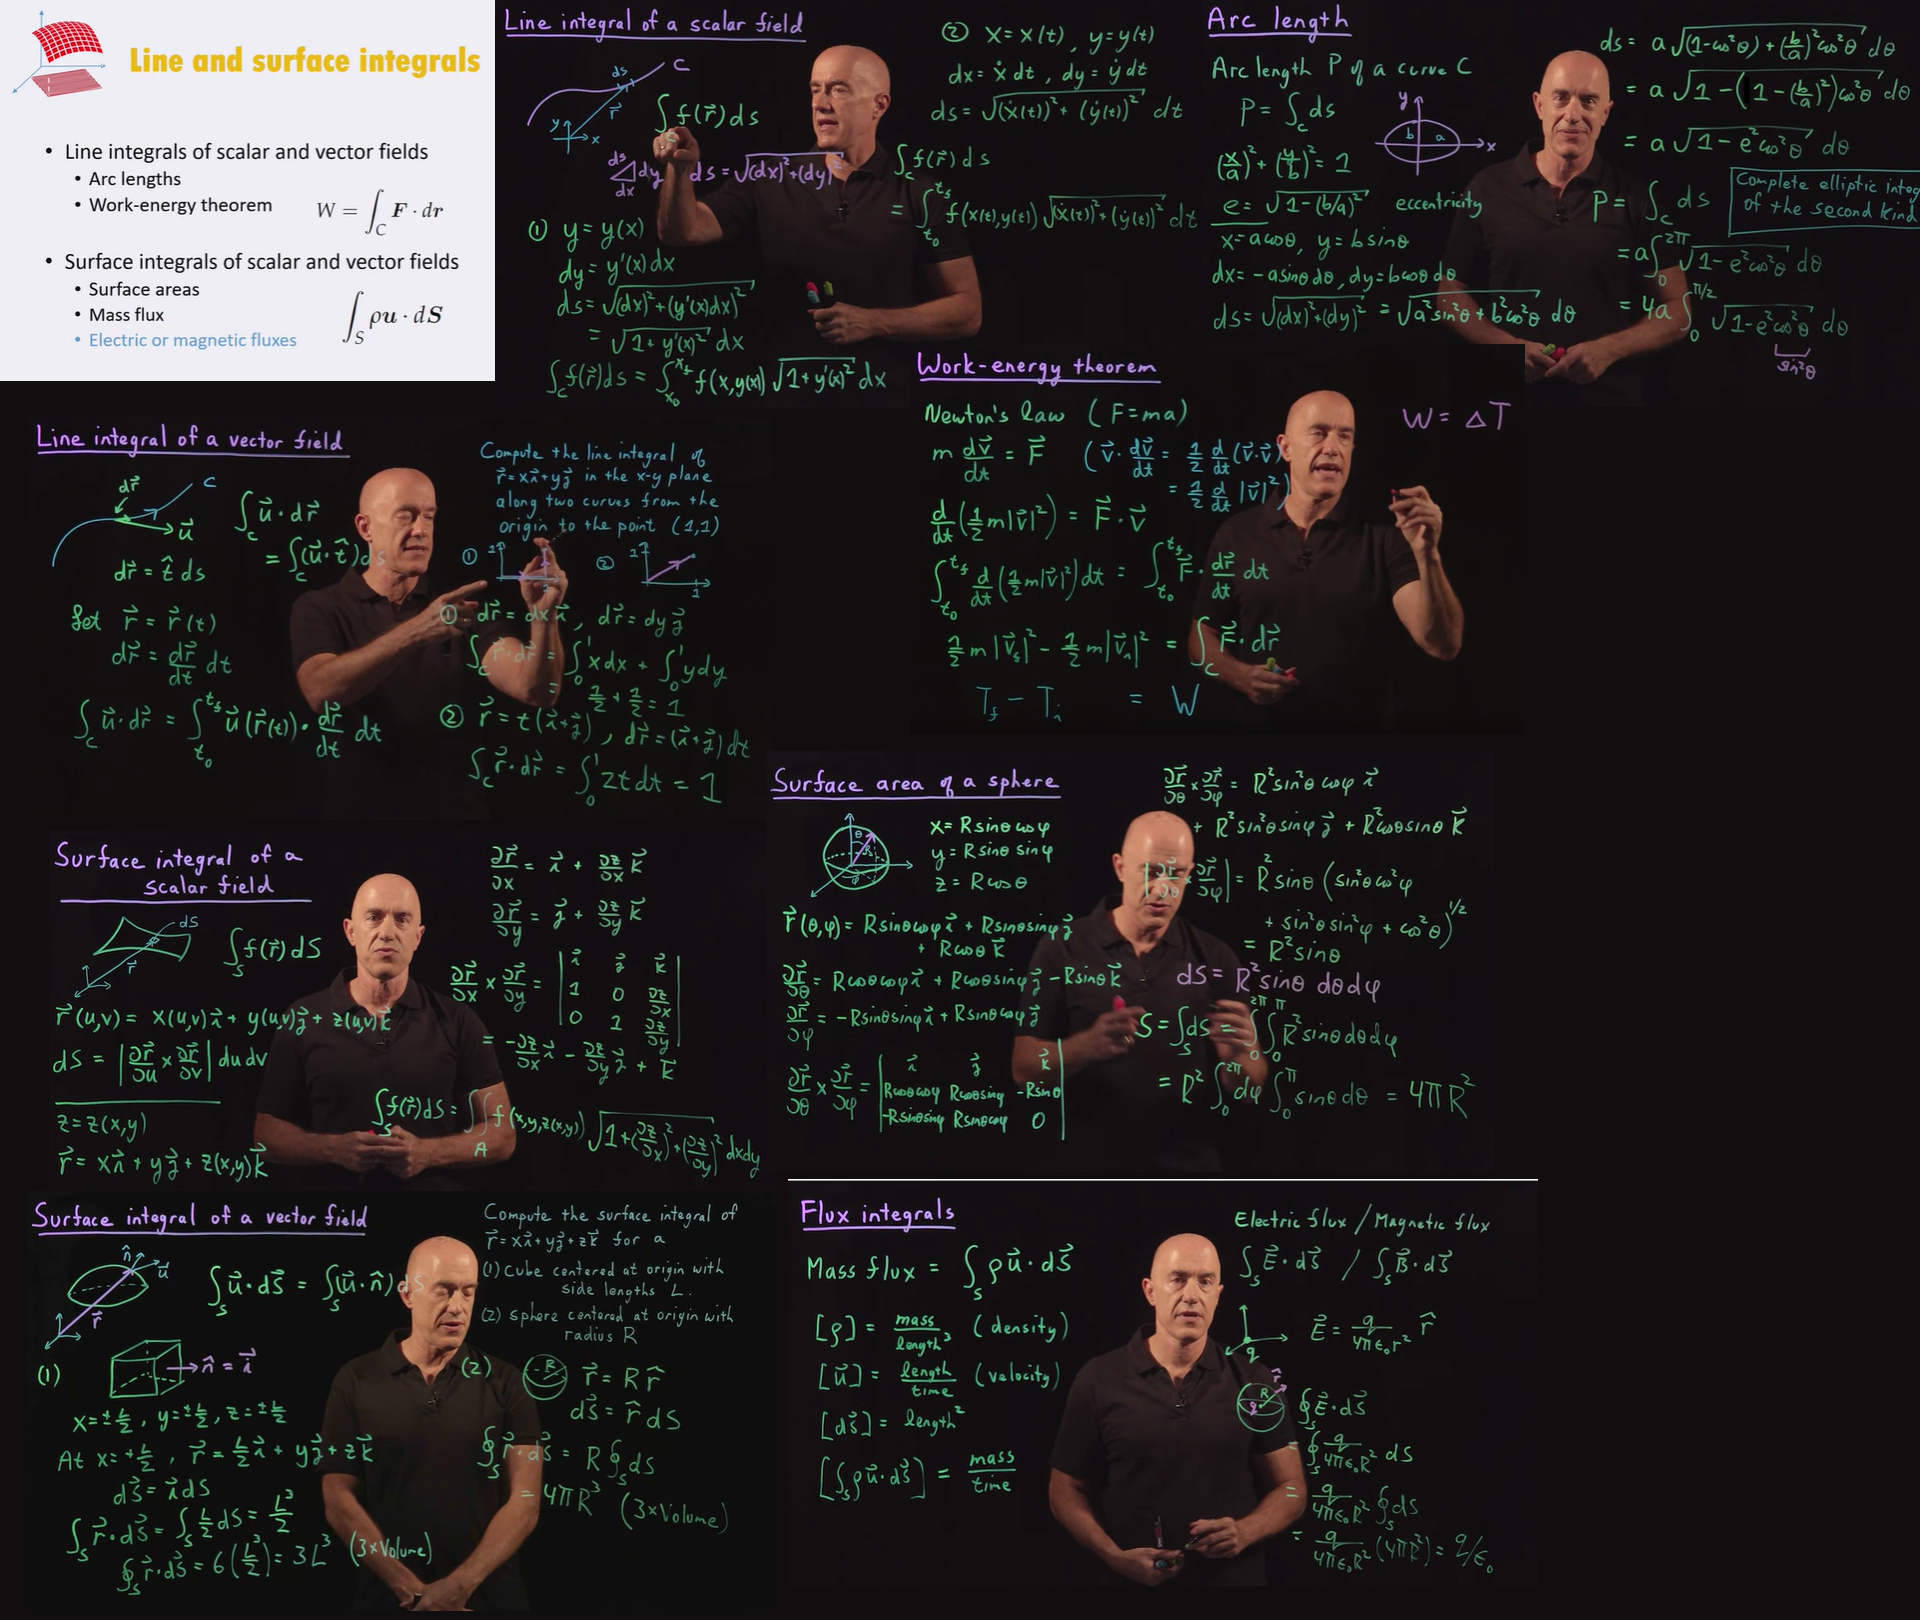 Line and surface integrals
• Line integrals of scalar and vector fields
• Arc lengths
• Work-energy theorem
W = ∫_C F · dr
• Surface integrals of scalar and vector fields
• Surface areas
• Mass flux
• Electric or magnetic fluxes
∫_S ρu · dS
Line integral of a scalar field
C
ds
r⃗
y
x
∫_C f(r⃗) ds
ds
dy
dx
ds = √((dx)²+(dy)²)
① y = y(x)
dy = y'(x)dx
ds = √((dx)²+(y'(x)dx)²)
= √(1+y'(x)²) dx
∫_C f(r⃗)ds = ∫_{x₀}^{x_f} f(x,y(x)) √(1+y'(x)²) dx
② x = x(t), y = y(t)
dx = ẋ dt, dy = ẏ dt
ds = √((ẋ(t))² + (ẏ(t))²) dt
∫_C f(r⃗) ds
= ∫_{t₀}^{t_f} f(x(t),y(t)) √((ẋ(t))²+(ẏ(t))²) dt
Arc length
Arc length P of a curve C
P = ∫_C ds
(x/a)² + (y/b)² = 1
y
b a
x
e = √(1-(b/a)²) eccentricity
x = a cosθ, y = b sinθ
dx = -a sinθ dθ, dy = b cosθ dθ
ds = √((dx)²+(dy)²) = √(a² sin²θ + b² cos²θ) dθ
ds = a √((1-cos²θ) + (b/a)² cos²θ) dθ
= a √(1 - (1-(b/a)²) cos²θ) dθ
= a √(1 - e² cos²θ) dθ
P = ∫_C ds
Complete elliptic integ
of the second kind
= a ∫_0^{2π} √(1-e² cos²θ) dθ
= 4a ∫_0^{π/2} √(1-e² cos²θ) dθ
sin²θ
Line integral of a vector field
dr⃗
C
u⃗
∫_C u⃗ · dr⃗
= ∫_C (u⃗ · t̂) ds
dr⃗ = t̂ ds
Let r⃗ = r⃗(t)
dr⃗ = dr⃗/dt dt
∫_C u⃗ · dr⃗ = ∫_{t₀}^{t_f} u⃗(r⃗(t)) · dr⃗/dt dt
Compute the line integral of
r⃗ = xi⃗ + yj⃗ in the x-y plane
along two curves from the
origin to the point (1,1)
①
1
②
1
1
① dr⃗ = dx i⃗, dr⃗ = dy j⃗
∫_C r⃗ · dr⃗ = ∫_0^1 x dx + ∫_0^1 y dy
= 1/2 + 1/2 = 1
② r⃗ = t(i⃗+j⃗), dr⃗ = (i⃗+j⃗) dt
∫_C r⃗ · dr⃗ = ∫_0^1 2t dt = 1
Work-energy theorem
Newton's law (F = ma)
m dv⃗/dt = F⃗ (v⃗ · dv⃗/dt = 1/2 d/dt (v⃗·v⃗)
= 1/2 d/dt |v⃗|²)
d/dt (1/2 m|v⃗|²) = F⃗ · v⃗
∫_{t₀}^{t_f} d/dt (1/2 m|v⃗|²) dt = ∫_{t₀}^{t_f} F⃗ · dr⃗/dt dt
1/2 m|v⃗_f|² - 1/2 m|v⃗_i|² = ∫_C F⃗ · dr⃗
T_f - T_i = W
W = ΔT
Surface integral of a
scalar field
dS
r⃗
∫_S f(r⃗) dS
r⃗(u,v) = x(u,v)i⃗ + y(u,v)j⃗ + z(u,v)k⃗
dS = |∂r⃗/∂u × ∂r⃗/∂v| du dv
z = z(x,y)
r⃗ = xi⃗ + yj⃗ + z(x,y)k⃗
∂r⃗/∂x = i⃗ + ∂z/∂x k⃗
∂r⃗/∂y = j⃗ + ∂z/∂y k⃗
∂r⃗/∂x × ∂r⃗/∂y = | i⃗ j⃗ k⃗ |
1 0 ∂z/∂x
0 1 ∂z/∂y
= -∂z/∂x i⃗ - ∂z/∂y j⃗ + k⃗
∫_S f(r⃗) dS = ∫∫_A f(x,y,z(x,y)) √(1+(∂z/∂x)²+(∂z/∂y)²) dxdy
Surface area of a sphere
θ
R
φ
x = R sinθ cosφ
y = R sinθ sinφ
z = R cosθ
r⃗(θ,φ) = R sinθ cosφ i⃗ + R sinθ sinφ j⃗
+ R cosθ k⃗
∂r⃗/∂θ = R cosθ cosφ i⃗ + R cosθ sinφ j⃗ - R sinθ k⃗
∂r⃗/∂φ = -R sinθ sinφ i⃗ + R sinθ cosφ j⃗
∂r⃗/∂θ × ∂r⃗/∂φ = | i⃗ j⃗ k⃗ |
R cosθ cosφ R cosθ sinφ -R sinθ
-R sinθ sinφ R sinθ cosφ 0
∂r⃗/∂θ × ∂r⃗/∂φ = R² sin²θ cosφ i⃗
+ R² sin²θ sinφ j⃗ + R² cosθ sinθ k⃗
|∂r⃗/∂θ × ∂r⃗/∂φ| = R² sinθ (sin²θ cos²φ
+ sin²θ sin²φ + cos²θ)^{1/2}
= R² sinθ
dS = R² sinθ dθdφ
S = ∫_S dS = ∫_0^{2π} ∫_0^π R² sinθ dθdφ
= R² ∫_0^{2π} dφ ∫_0^π sinθ dθ = 4πR²
Surface integral of a vector field
n̂
u⃗
r⃗
∫_S u⃗ · dS⃗ = ∫_S (u⃗ · n̂) dS
(1)
n̂ = i⃗
x = ±L/2, y = ±L/2, z = ±L/2
At x = +L/2, r⃗ = L/2 i⃗ + yj⃗ + zk⃗
dS⃗ = i⃗ dS
∫_S r⃗ · dS⃗ = ∫_S L/2 dS = L³/2
∮_S r⃗ · dS⃗ = 6(L³/2) = 3L³ (3×Volume)
Compute the surface integral of
r⃗ = xi⃗ + yj⃗ + zk⃗ for a
(1) Cube centered at origin with
side lengths L.
(2) sphere centered at origin with
radius R
(2)
R
r⃗ = R r̂
dS⃗ = r̂ dS
∮_S r⃗ · dS⃗ = R ∮_S dS
= 4πR³ (3×Volume)
Flux integrals
Mass flux = ∫_S ρu⃗ · dS⃗
[ρ] = mass/length³ (density)
[u⃗] = length/time (velocity)
[dS⃗] = length²
[∫_S ρu⃗ · dS⃗] = mass/time
Electric flux / Magnetic flux
∫_S E⃗ · dS⃗ / ∫_S B⃗ · dS⃗
q
E⃗ = q/(4πε₀r²) r̂
r̂
R
q
∮_S E⃗ · dS⃗
= ∮_S q/(4πε₀R²) dS
= q/(4πε₀R²) ∮_S dS
= q/(4πε₀R²) (4πR²) = q/ε₀